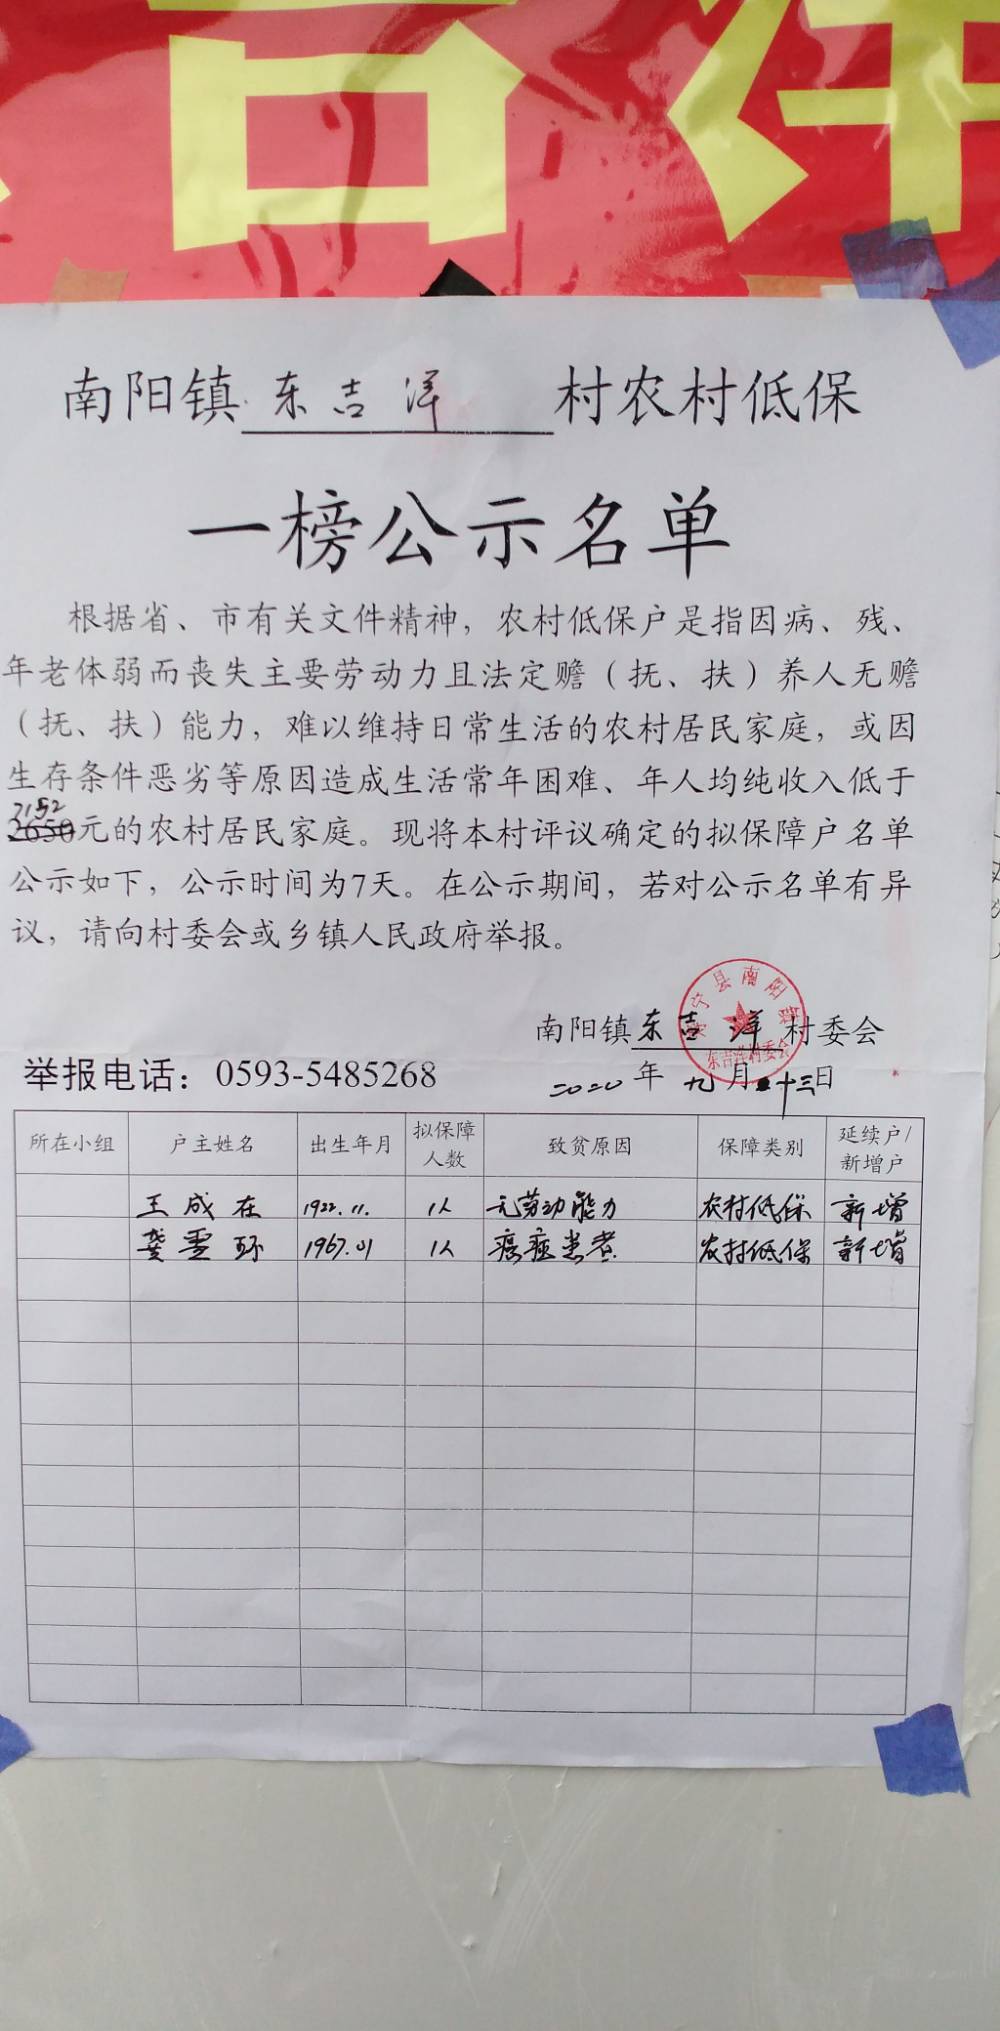 南阳镇东吉洋村农村低保
一榜公示名单
根据省、市有关文件精神，农村低保户是指因病、残、
年老体弱而丧失主要劳动力且法定赡（抚、扶）养人无赡
（抚、扶）能力，难以维持日常生活的农村居民家庭，或因
生存条件恶劣等原因造成生活常年困难、年人均纯收入低于
7152
2650元的农村居民家庭。现将本村评议确定的拟保障户名单
公示如下，公示时间为7天。在公示期间，若对公示名单有异
议，请向村委会或乡镇人民政府举报。
宁县南阳镇
南阳镇东吉洋村委会
东吉洋村委会
举报电话：0593-5485268
二〇二〇年九月二十三日
所在小组 户主姓名 出生年月 拟保障人数 致贫原因 保障类别 延续户/新增户
王成在 1922.11. 1人 无劳动能力 农村低保 新增
龚 环 1967.01 1人 癌症患者 农村低保 新增